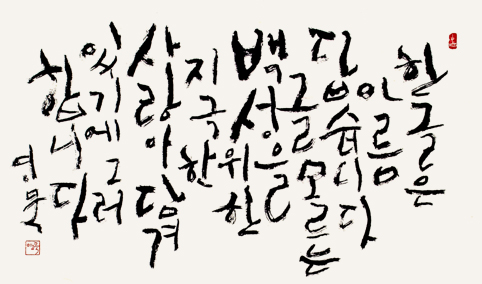 한글은
아름
답습니다
글 모르는
백성을
위한
지극한
사랑이 담겨
있기에 그러
합니다